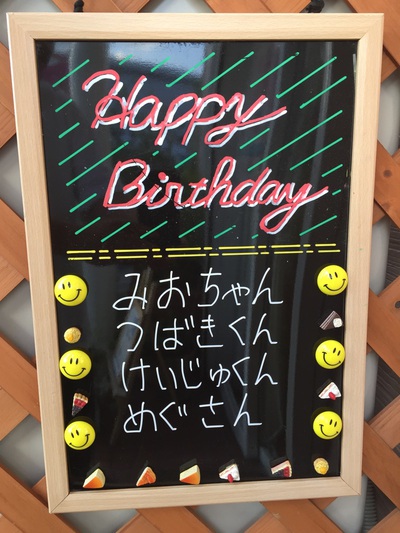 Happy
Birthday
みおちゃん
つばきくん
けいじゅくん
めぐさん